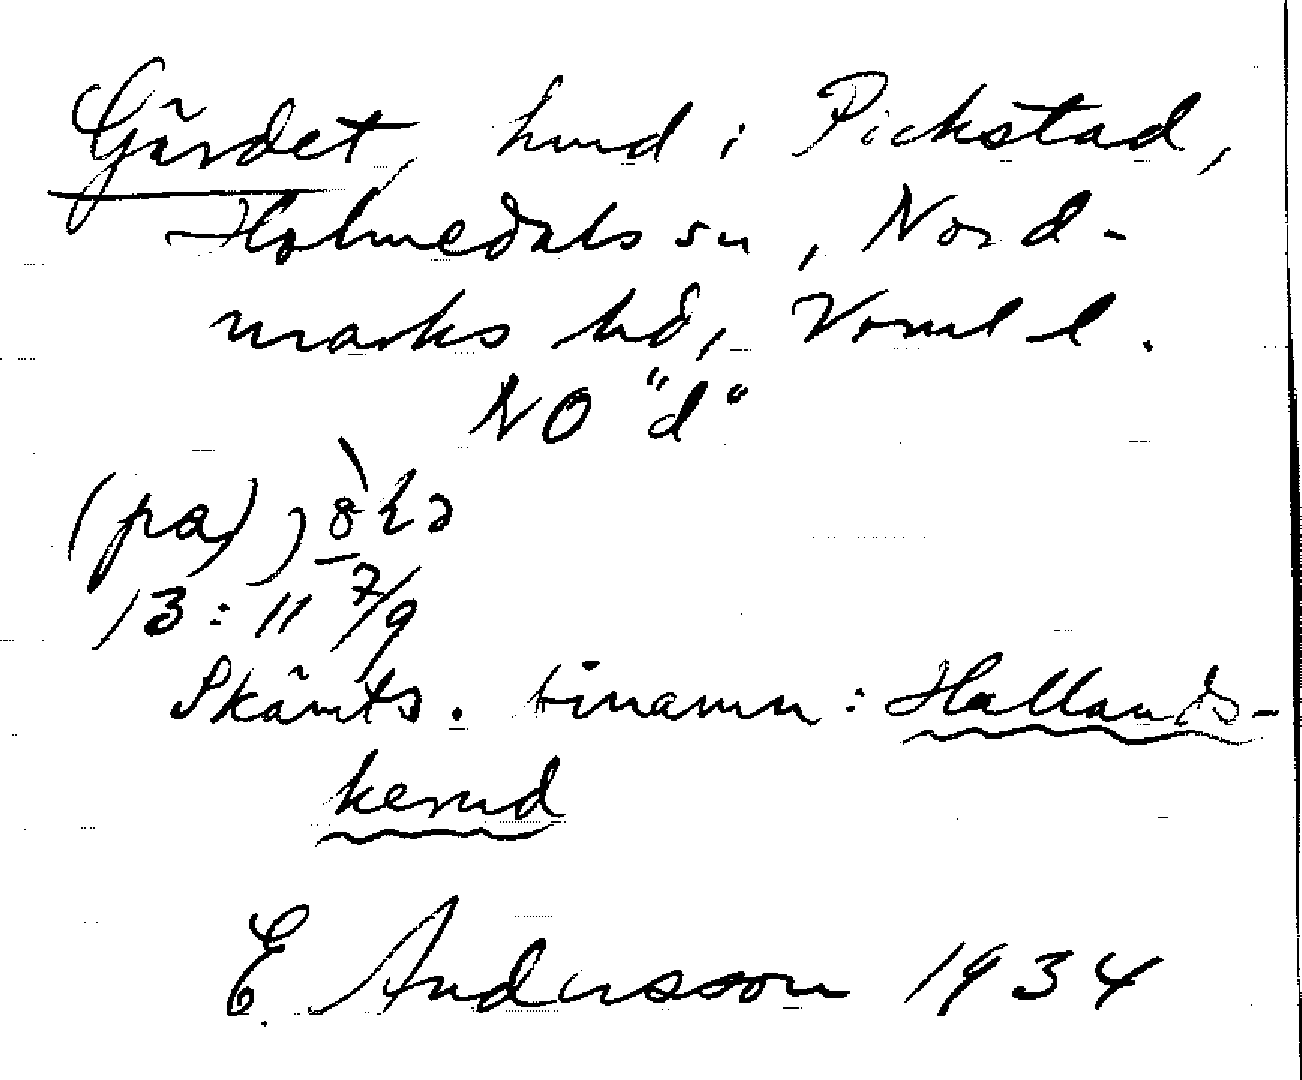 Gärdet, hmd i Pickstad,
Holmedals sn, Nord-
marks hd, Vrml l.
NO "d"
(pa)
13:11 7/9
Skämts. binamn: Hallands-
kerud
E. Andersson 1934